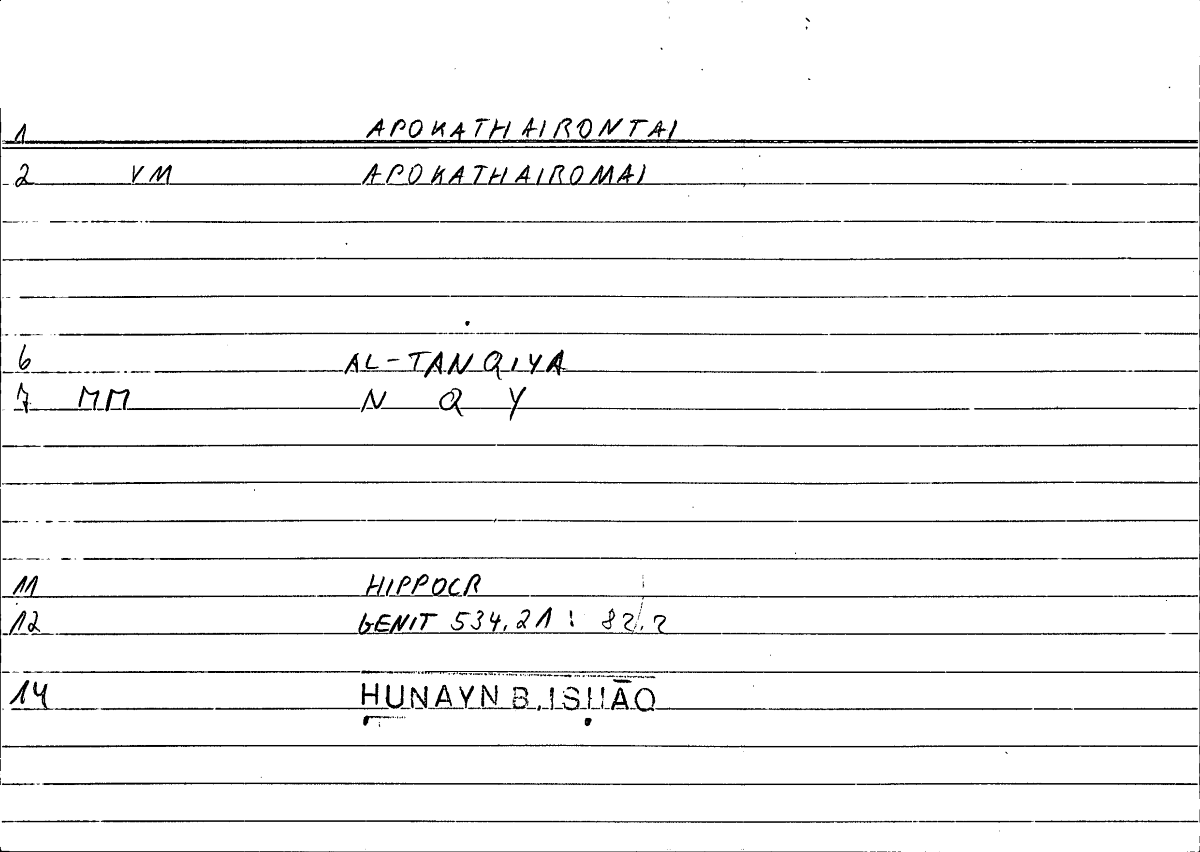 1 APOKATHAIRONTAI
2 VM APOKATHAIROMAI
6 AL-TANQIYA
7 MM N Q Y
11 HIPPOCR
12 GENIT 534,21 : 82,2
14 ḤUNAYN B. ISḤĀQ